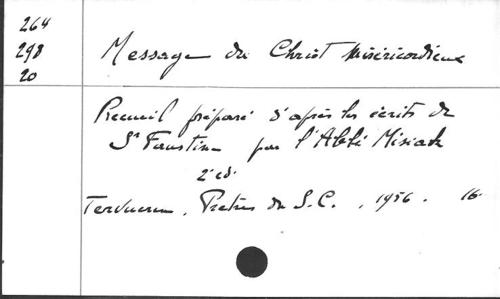 264
298
20
Message du Christ Miséricordieux
Recueil préparé d'après les écrits de
Sr Faustine par l'Abbé Misiak
2e éd.
Tervueren, Prêtres du S.C., 1956. 16